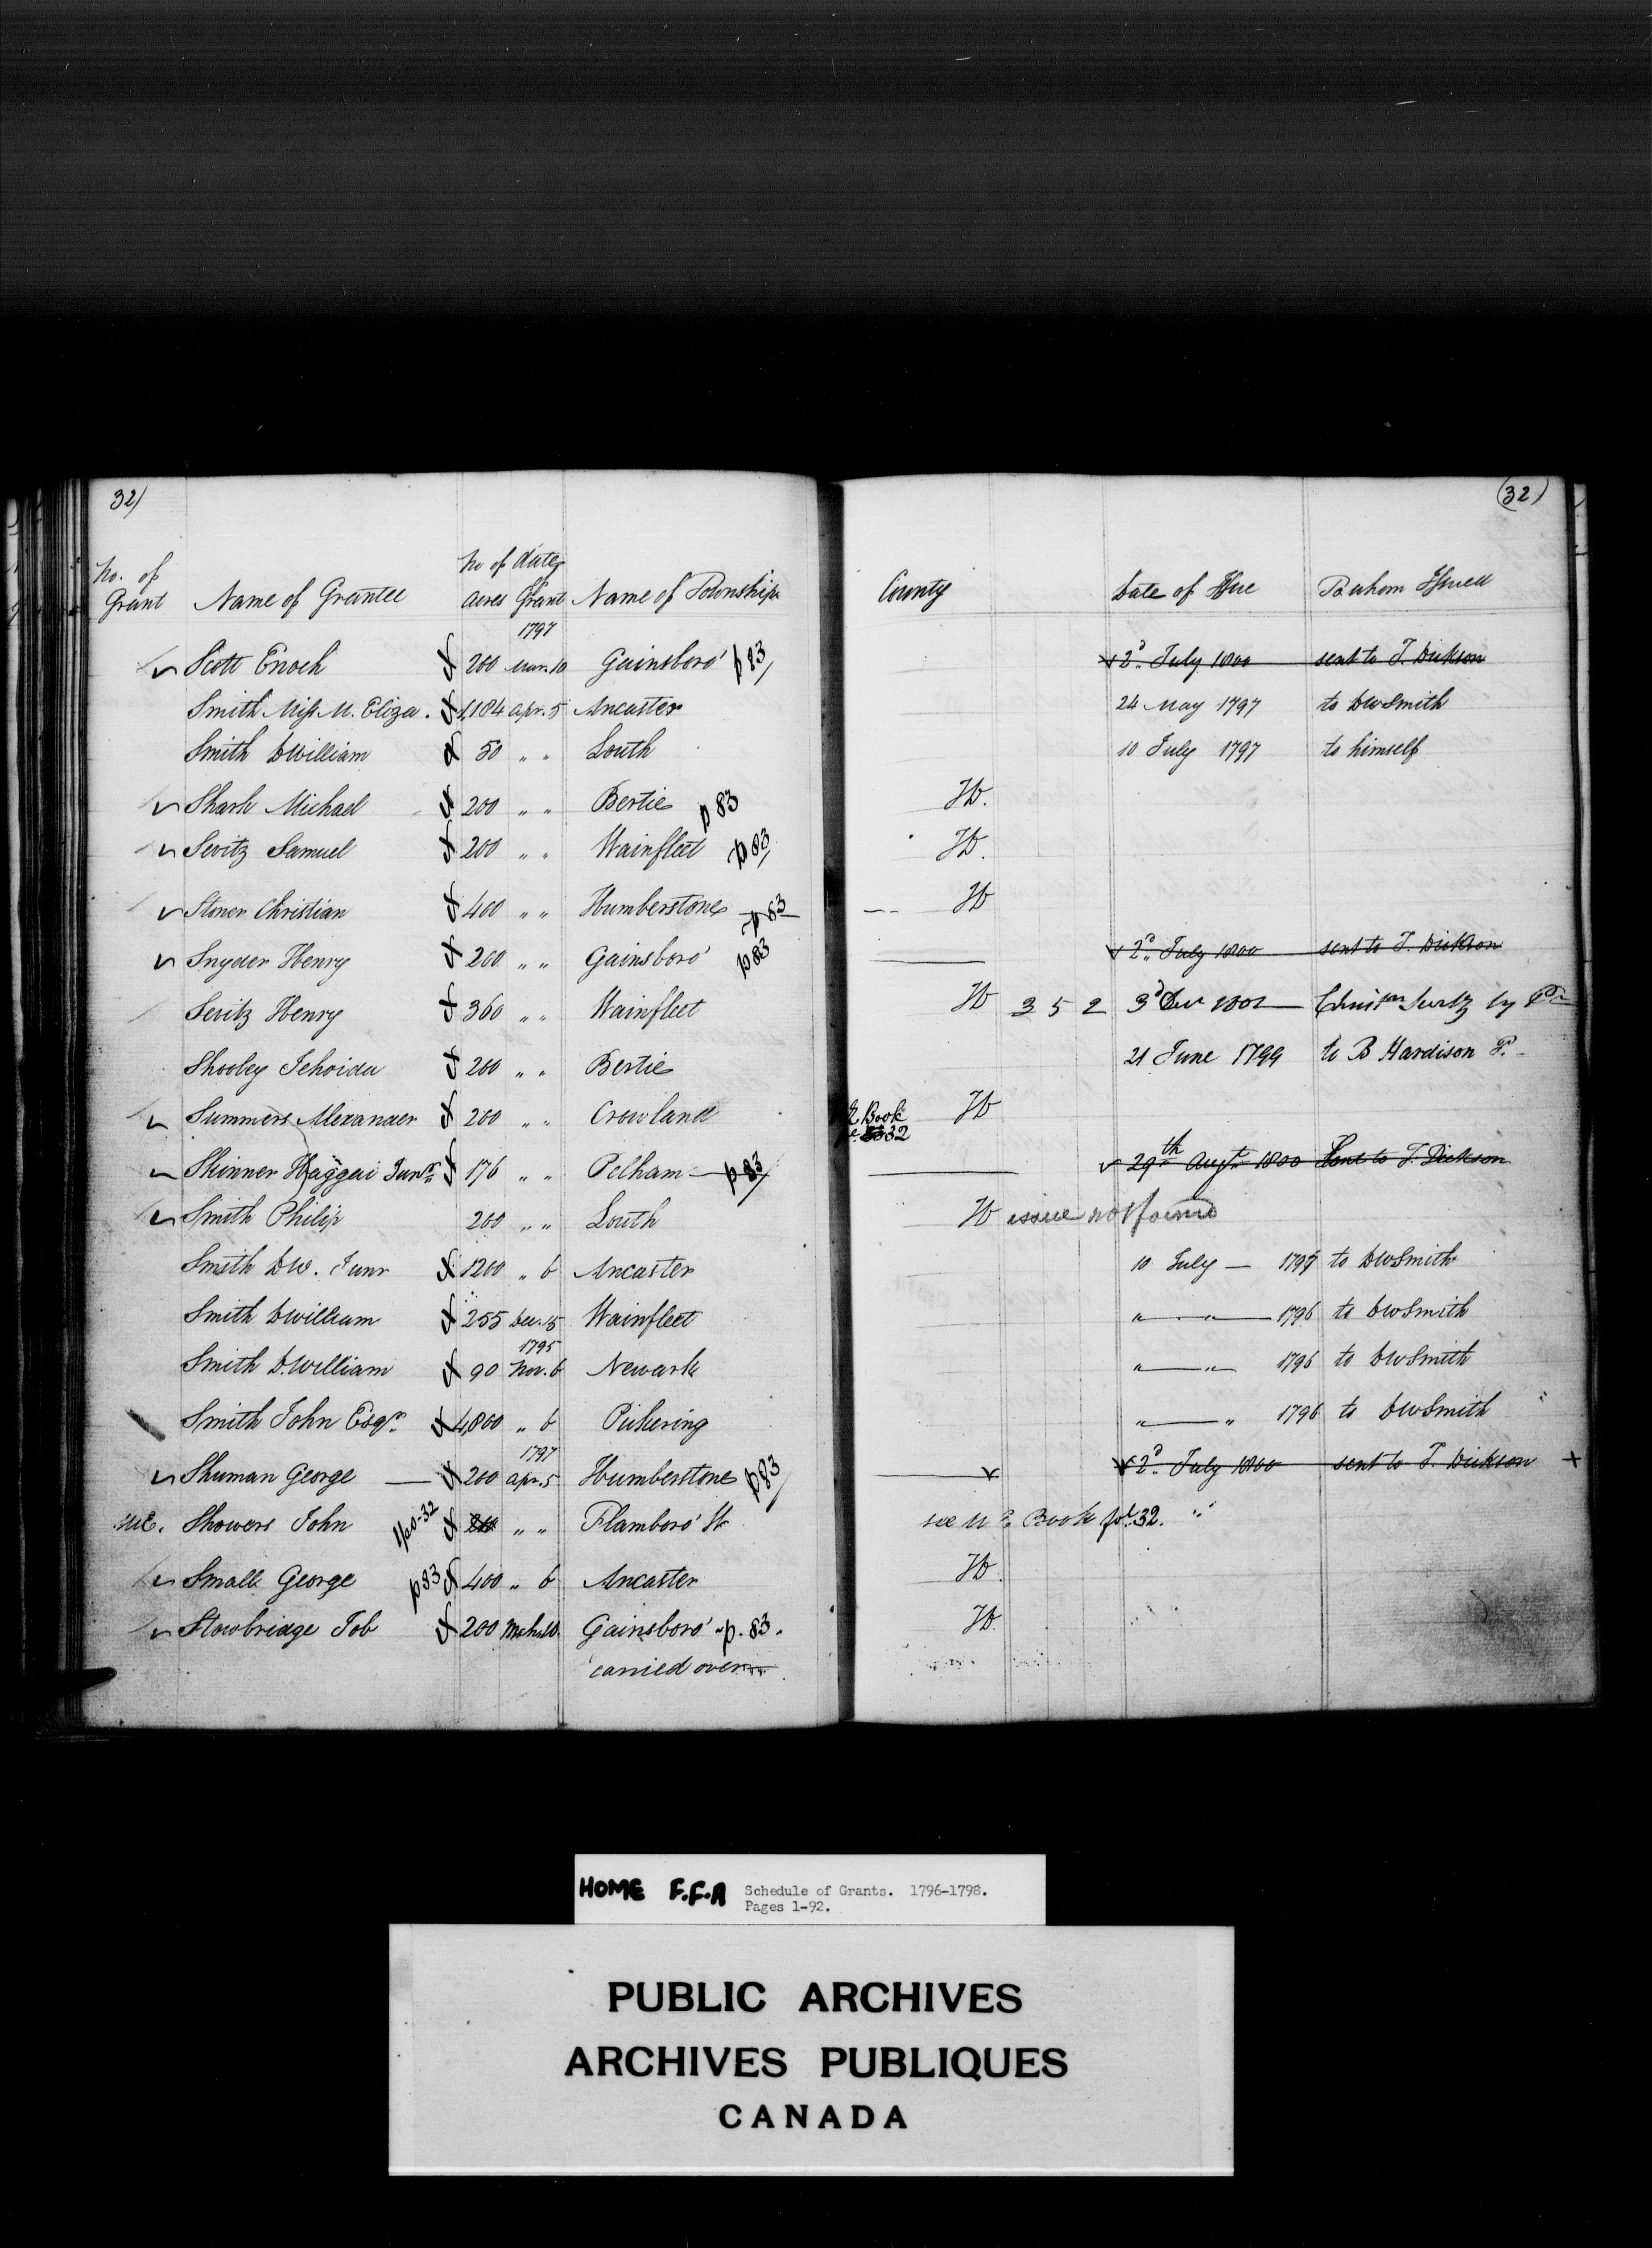 32)
(32)
No. of Grant Name of Grantee No of acres date of Grant Name of Township County Date of Issue To whom Issued
1797
Scott Enoch 200 Mar. 10 Gainsboro' p83 2d. July 1800 sent to T. Dickson
Smith Miss M. Eliza. 1,184 apr. 5 Ancaster 24 May 1797 to DWSmith
Smith DWilliam 50 " " Louth 10 July 1797 to himself
Shark Michael 200 " " Bertie p83 HD.
Sevitz Samuel 200 " " Wainfleet p83 HD.
Stoner Christian 400 " " Humberstone p83 HD
Snyder Henry 200 " " Gainsboro' p83 2d. July 1800 sent to T. Dickson
Sevitz Henry 360 " " Wainfleet HD 352 3d 1801 by
Shooley Jehoida 200 " " Bertie 21 June 1799 to B Hardison P.
Summers Alexander 200 " " Crowland E Book 32 HD
Skinner Haggai Junr. 176 " " Pelham p83 29th Augt. 1800 Sent to T. Dickson
Smith Philip 200 " " Louth HD issue not found
Smith DW. Junr 1200 " 6 Ancaster 10 July — 1797 to DWSmith
Smith DWilliam 255 Dec. 15 Wainfleet " " 1796 to DWSmith
1795
Smith D.William 90 Nov. 6 Newark " " 1796 to DWSmith
Smith John Esqr. 4,800 " 6 Pickering " " 1796 to DWSmith
1797
Shuman George — 200 apr. 5 Humberstone p83 2d. July 1800 sent to T. Dickson
UE. Showers John 200 " " Flamboro' W see UE. Book fol. 32.
Small George p83 400 " 6 Ancaster HD.
Stowbridge Job 200 Mch. 10. Gainsboro' p. 83. HD.
carried over
HOME F.F.A Schedule of Grants. 1796-1798.
Pages 1-92.
PUBLIC ARCHIVES
ARCHIVES PUBLIQUES
CANADA